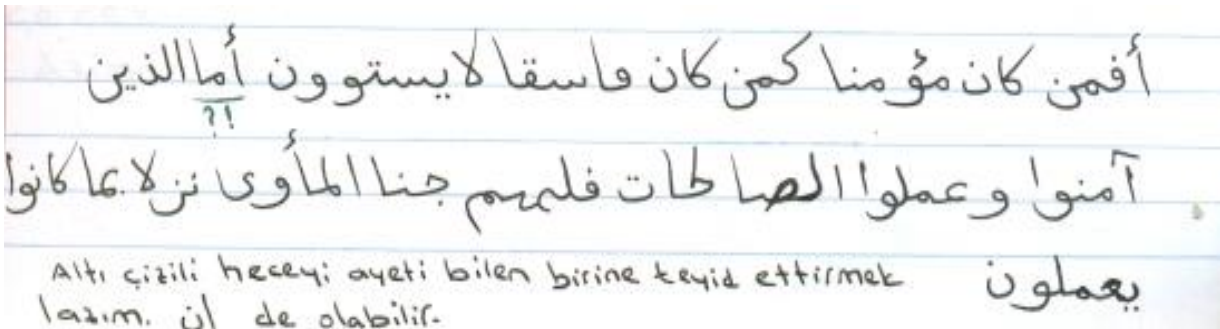 أفمن كان مؤمنا كمن كان فاسقا لا يستوون أما الذين
?!
آمنوا وعملوا الصالحات فلهم جنا المأوى نزلا بما كانوا
يعملون
Altı çizili heceyi ayeti bilen birine teyid ettirmek
lazım. أن de olabilir.